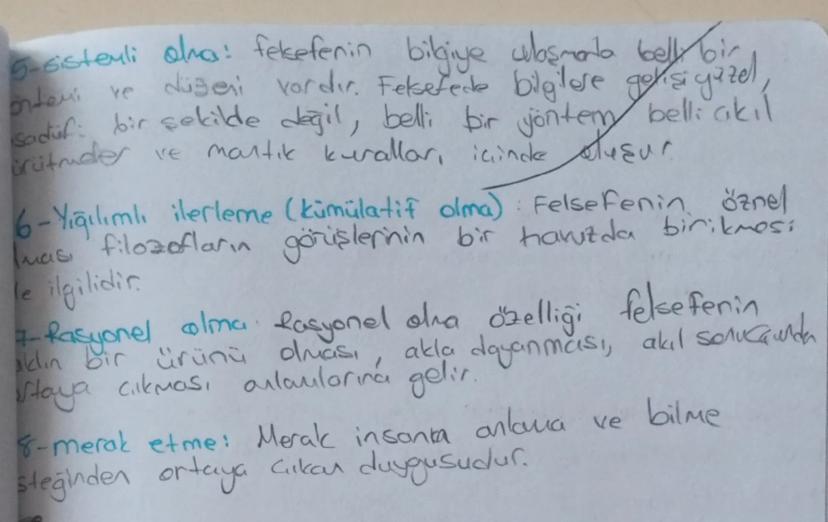 5-sistemli olma: felsefenin bilgiye ulaşmada belli bir
yöntemi ve düzeni vardır. Felsefede bilgiler gelişigüzel,
sadüfi bir şekilde değil, belli bir yöntem belli akıl
yürütmeler ve mantık kuralları içinde oluşur.
6-Yığılımlı ilerleme (kümülatif olma): Felsefenin öznel
olması filozofların görüşlerinin bir havuzda birikmesi
ile ilgilidir.
7-Rasyonel olma: Rasyonel olma özelliği felsefenin
aklın bir ürünü olması, akla dayanması, akıl sonucunda
ortaya çıkması anlamlarına gelir.
8-merak etme: Merak insanta anlama ve bilme
isteğinden ortaya çıkan duygusudur.